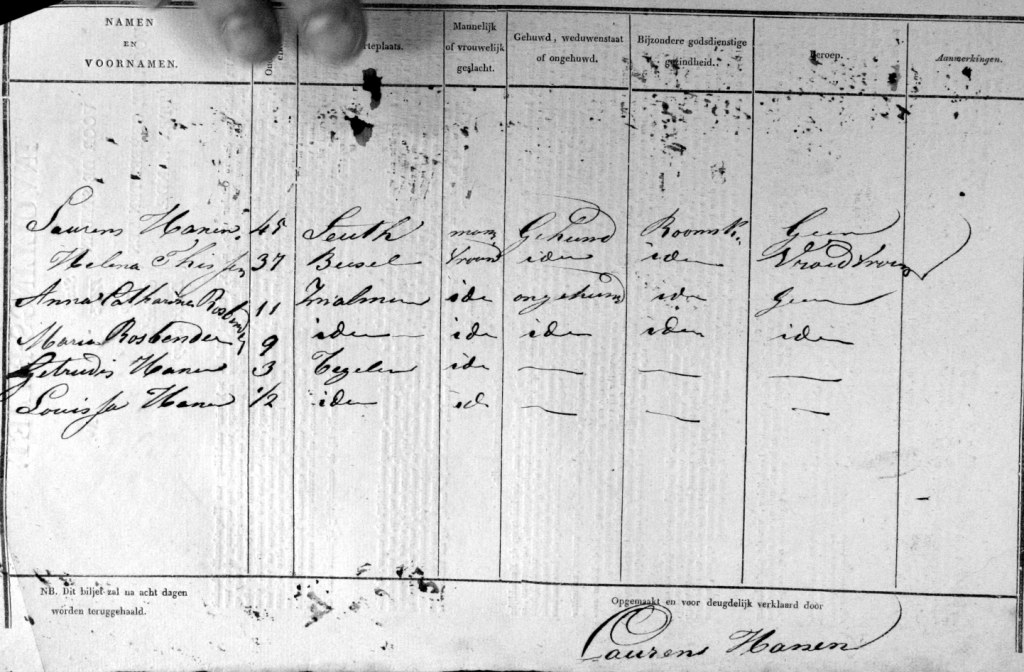 NAMEN EN VOORNAMEN. rteplaats. Mannelijk of vrouwelijk geslacht. Gehuwd, weduwenstaat of ongehuwd. Bijzondere godsdienstige gezindheid. Beroep. Aanmerkingen.
Laurens Hanen. 45 Leuth man Gehuwd Roomsk. Geen
Helena Thissen 37 Beesel Vrouw idem idem Vroedvrouw
Anna Catharina Rosbender 11 idem ongehuwd idem Geen
Maria Rosbender 9 idem idem idem idem idem
Getrudis Hanen 3 Tegelen idem — — —
Louissa Hanen 1/2 idem id — — —
NB. Dit biljet zal na acht dagen
worden teruggehaald.
Opgemaakt en voor deugdelijk verklaard door
Laurens Hanen